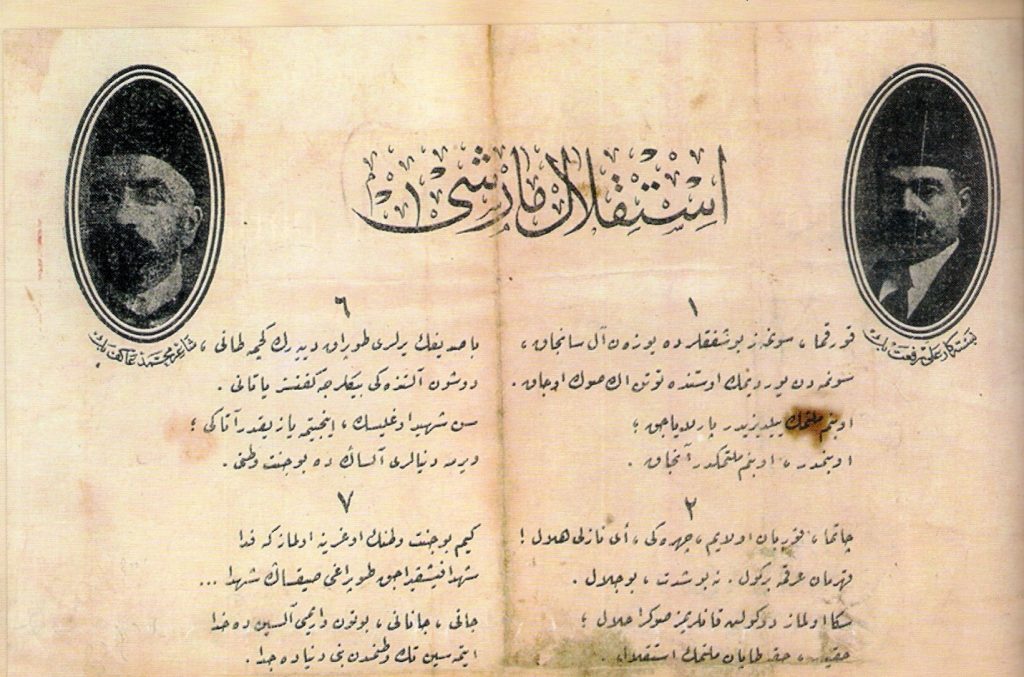 استقلال مارشی
بسته‌كار علی رفعت بك
شاعر محمد عاكف بك
١
قورقما ، سونمز بو شفقلرده یوزن آل سانجاق ،
سونمه دن یوردیمك اوستنده توتن اك صوك اوجاق .
او بنم ملتمك ییلدیزیدر پارلایاجق ؛
او بنمدر ، او بنم ملتمكدر آنجاق .
٢
چاتما ، قوربان اولایم ، چهره كی ، أی نازلی هلال !
قهرمان عرقمه بر كول . نه بو شدت ، بو جلال .
سكا اولماز دوكولن قانلریمز صوكرا حلال ؛
حقیدر ، حقه طاپان ملتمك استقلال .
٦
باصدیغك یرلری طوپراق دییه رك كچمه طانی ،
دوشون آلتنده كی بیكلرجه كفنسز یاتانی .
سن شهید اوغلیسك ، اینجیتمه یازیقدر آتاكی ؛
ویرمه دنیالری آلساك ده بو جنت وطنی .
٧
كیم بو جنت وطنك اوغرینه اولماز كه فدا
شهدا فیشقیراجق طوپراغی صیقساك شهدا ...
جانی ، جانانی ، بوتون واریمی آلسین ده خدا
ایتمه سین تك وطنمدن بنی دنیاده جدا .